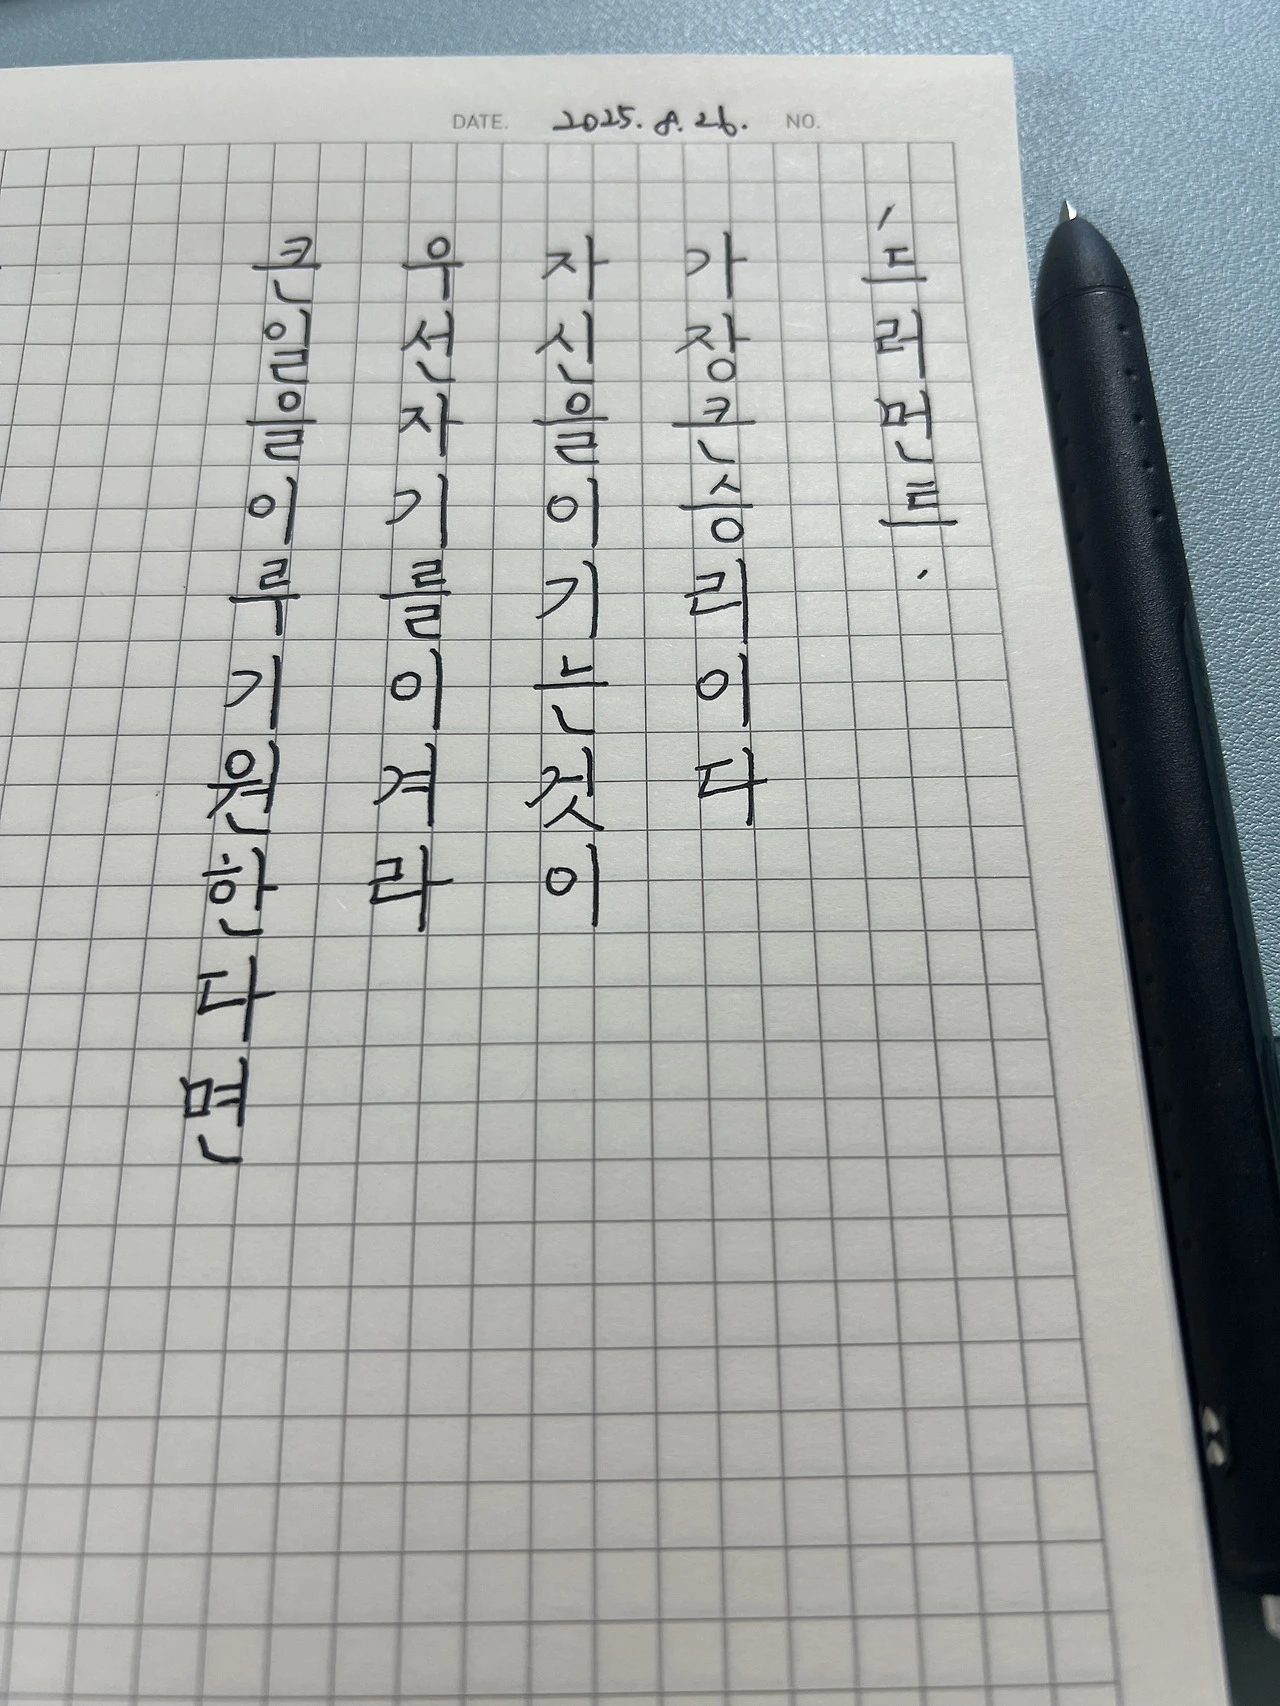 DATE. 2025. 8. 26. NO.
큰일을이루기원한다면
우선자기를이겨라
자신을이기는것이
가장큰승리이다
'드러먼트'